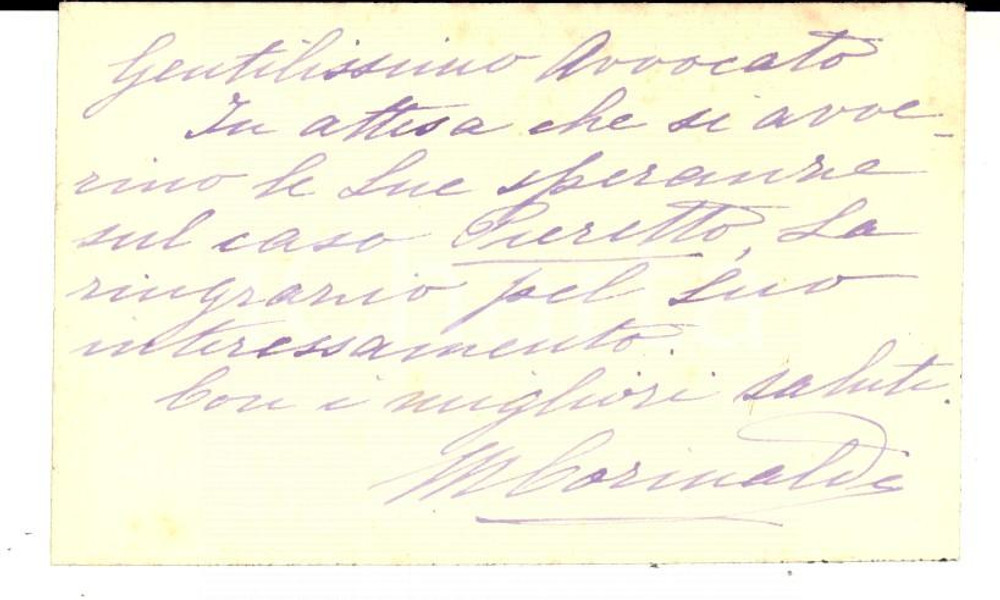 Gentilissimo Avvocato
In attesa che si avve-
rino le Sue speranze
sul caso Pieretto, La
ringrazio pel Suo
interessamento.
Con i migliori saluti.
M Corinaldi